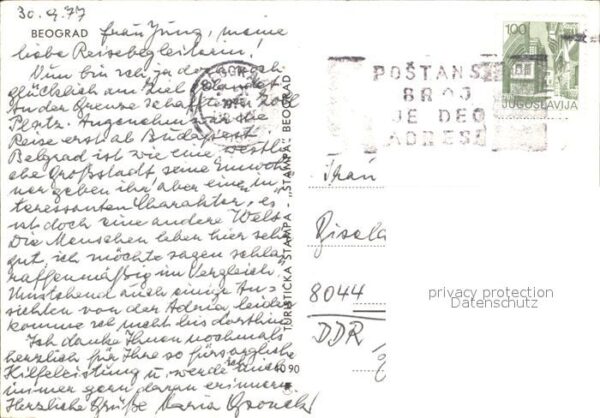 30.9.77
BEOGRAD
Frau Jung, meine
liebe Reisebegleiterin!
Nun bin ich ja doch noch
glücklich am Ziel gelandet.
An der Grenze schafften Zoll
Platz. Angenehm war die
Reise erst ab Budapest.
Belgrad ist wie eine westli
che Großstadt, seine Einwoh
ner geben ihr aber einen in
teressanten Charakter, es
ist doch eine andere Welt.
Die Menschen leben hier sehr
gut, ich möchte sagen schla
raffenmäßig im Vergleich.
Umstehend auch einige An
sichten von der Adria, leider
komme ich nicht bis dorthin.
Ich danke Ihnen nochmals
herzlich für Ihre so fürsorgliche
Hilfeleistung u. werde mich auch
immer gern daran erinnern.
Herzliche Grüße Maria
TURISTICKA ŠTAMPA - „ŠTAMPA" BEOGRAD
90
100
JUGOSLAVIJA
POŠTANS
BROJ
JE DEO
ADRESE
Frau
Gisela
8044
DDR
privacy protection
Datenschutz